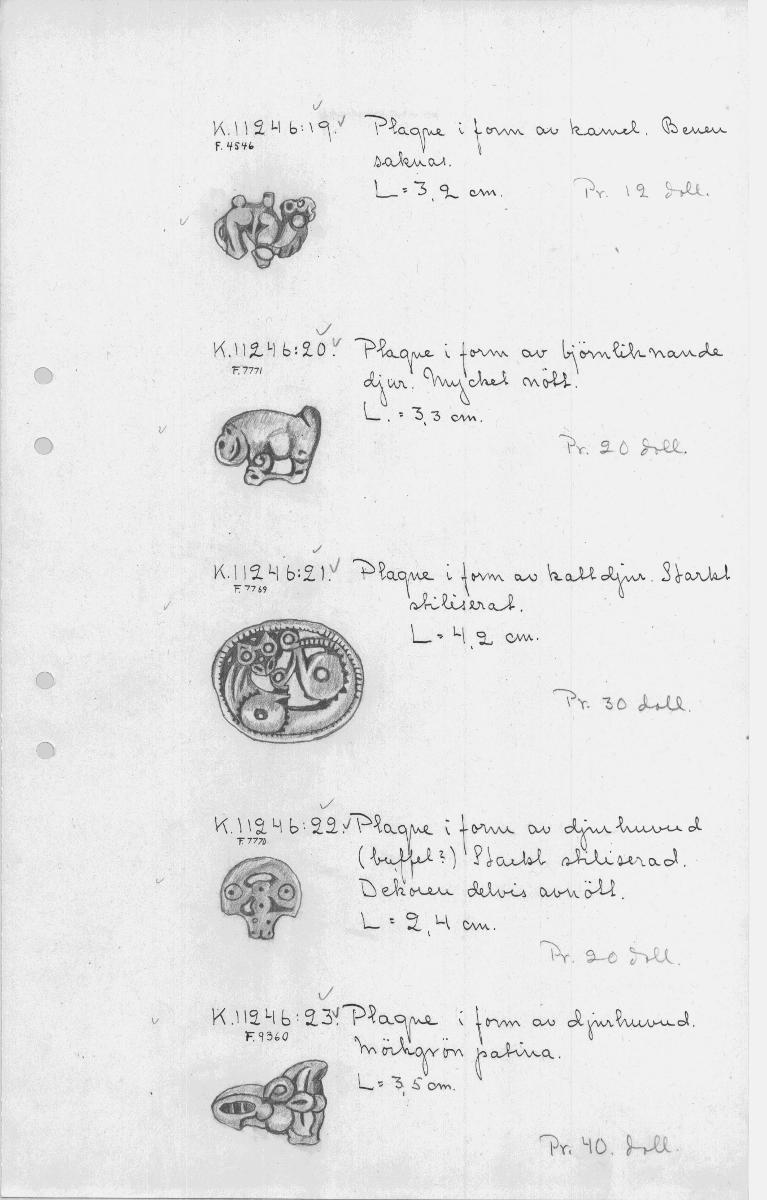 K.11246:19. Plaque i form av kamel. Benen
F.4546
saknas.
L = 3,2 cm. Pr. 12 doll.
K.11246:20. Plaque i form av björnliknande
F.7771
djur. Mycket nött.
L. = 3,3 cm.
Pr. 20 doll.
K.11246:21. Plaque i form av kattdjur. Starkt
F.7769
stiliserat.
L = 4,2 cm.
Pr. 30 doll.
K.11246:22. Plaque i form av djurhuvud
F.7770
(buffel?) Starkt stiliserad.
Dekoren delvis avnött.
L = 2,4 cm.
Pr. 20 doll.
K.11246:23. Plaque i form av djurhuvud.
F.9360
Mörkgrön patina.
L = 3,5 cm.
Pr. 40. doll.